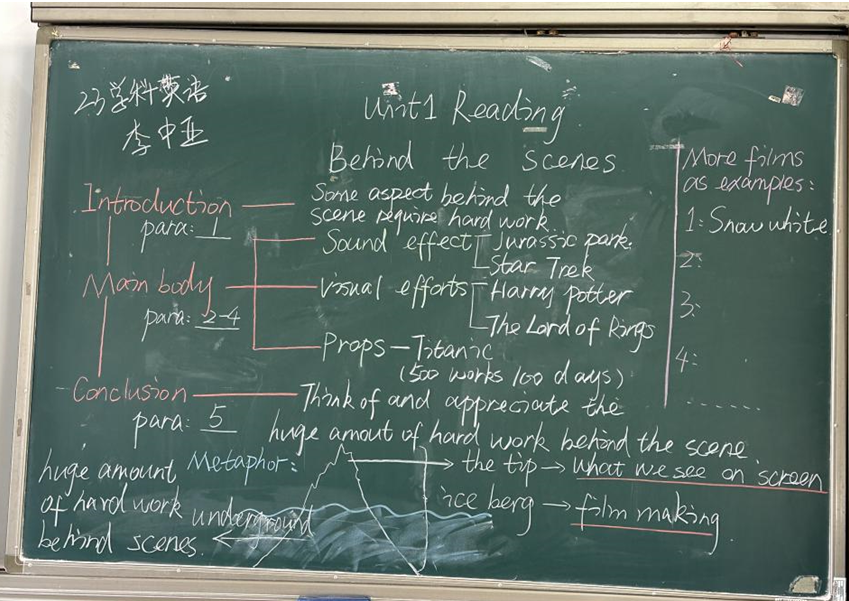 23学科英语
李中亚
Unit1 Reading
Behind the scenes
Introduction
para: 1
Some aspect behind the
scene require hard work
Main body
para: 2-4
Sound effect
Jurassic park.
Star Trek
visual efforts
Harry potter
The Lord of Rings
Props — Titanic
(500 works 100 days)
Conclusion
para: 5
Think of and appreciate the
huge amout of hard work behind the scene.
More films
as examples:
1: Snow white
2:
3:
4:
.......
Metaphor:
huge amount
of hard work
behind scenes.
underground
the tip → what we see on screen
ice berg → film making.